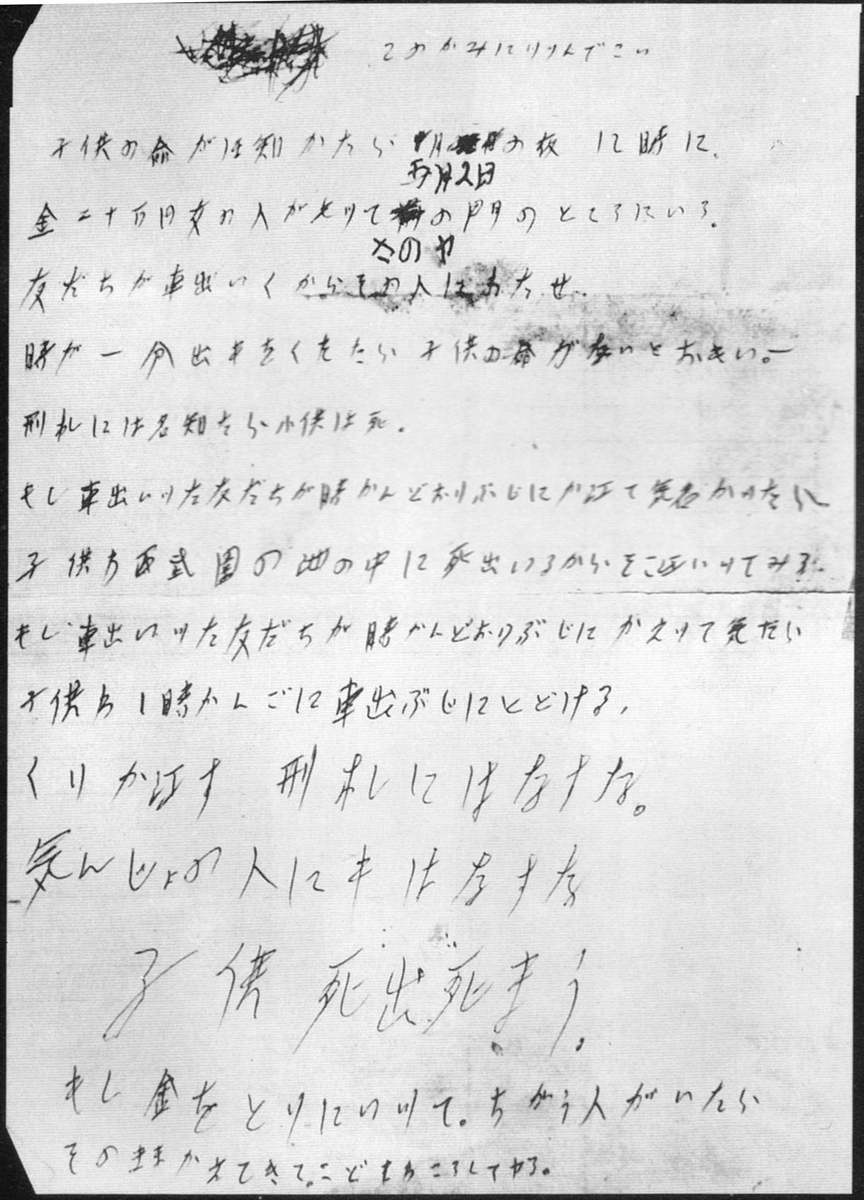 このかみにツツんでこい
子供の命がほ知かたら の夜 12時に、
五月2日
金二十万円女の人がもツて の門のところにいろ。
さのヤ
友だちが車出いくからその人にわたせ。
時が一分出もをくれたら子供の命がないとおもい。ー
刑札には名知たら小供は死。
もし車出いツた友だちが時かんどおりぶじにかエて気名かツたら
子供わ西武園の池の中に死出いるからそこエいツてみろ。
もし車出いツた友だちが時かんどおりぶじにかえツて気たら
子供わ1時かんごに車出ぶじにとどける。
くりかエす 刑札にはなすな。
気んじょの人にもはなすな
子供死出死まう。
もし金をとりにいツて。ちがう人がいたら
そのままかえてきて。こどもわころしてヤる。